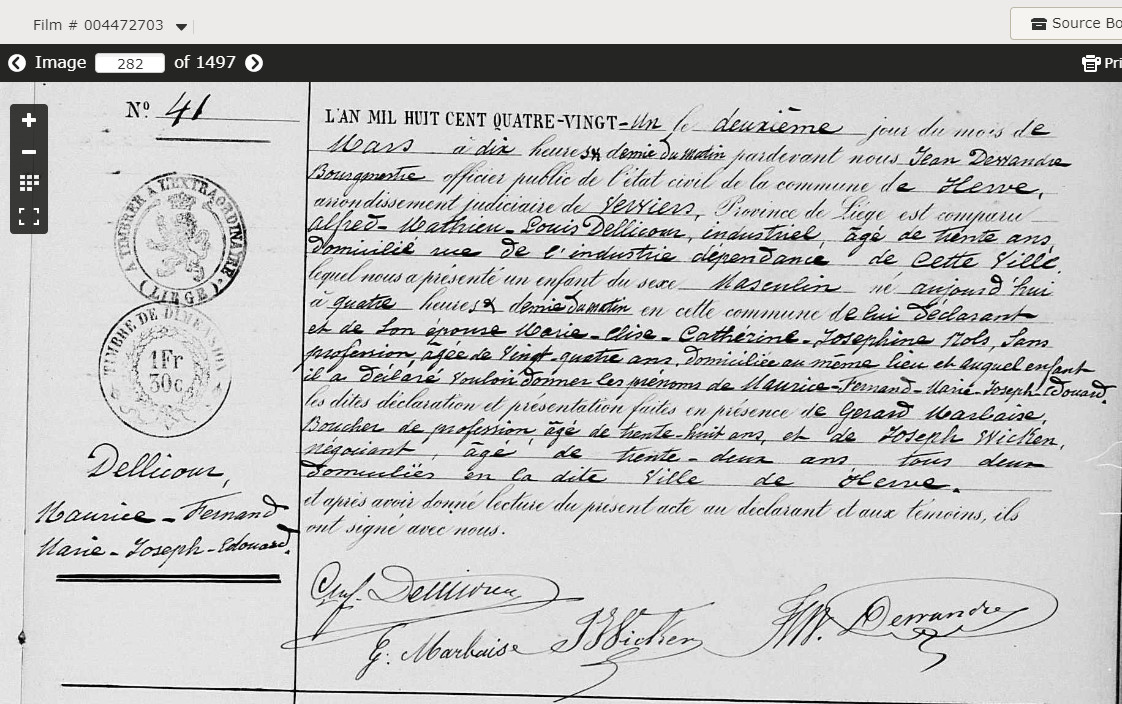 Film # 004472703
Source Bo
Image 282 of 1497
Pri
N° 41
A TIMBRER A L'EXTRAORDINAIRE
(LIEGE)
TIMBRE DE DIMENSION
1Fr
30c
Dellicour,
Maurice - Fernand
Marie - Joseph - Edouard.
L'AN MIL HUIT CENT QUATRE-VINGT-Un le deuxième jour du mois de
Mars à dix heures & demie du matin pardevant nous Jean Derrandre
Bourgmestre officier public de l'état civil de la commune de Herve,
arrondissement judiciaire de Verviers, Province de Liége est comparu
Alfred - Mathieu - Louis Dellicour, industriel, âgé de trente ans,
domicilié rue de l'industrie dépendance de Cette Ville,
lequel nous a présenté un enfant du sexe Masculin né aujourd'hui
à quatre heures & demie du matin en cette commune de lui Déclarant
et de son epouse Marie - Elise - Cathérine - Josephine Nols, Sans
profession, âgée de Vingt quatre ans, domiciliée au même lieu et auquel enfant
il a déclaré vouloir donner les prénoms de Maurice - Fernand - Marie - Joseph Edouard.
les dites déclaration et présentation faites en présence de Gerard Marbaise,
Boucher de profession, âgé de trente-huit ans, et de Joseph Wicken,
négociant, âgé de trente - deux ans tous deux
domiciliés en la dite Ville de Herve.
et après avoir donné lecture du présent acte au déclarant et aux témoins, ils
ont signé avec nous.
Alf. Dellicour
G. Marbaise
Wicken
Derrandre